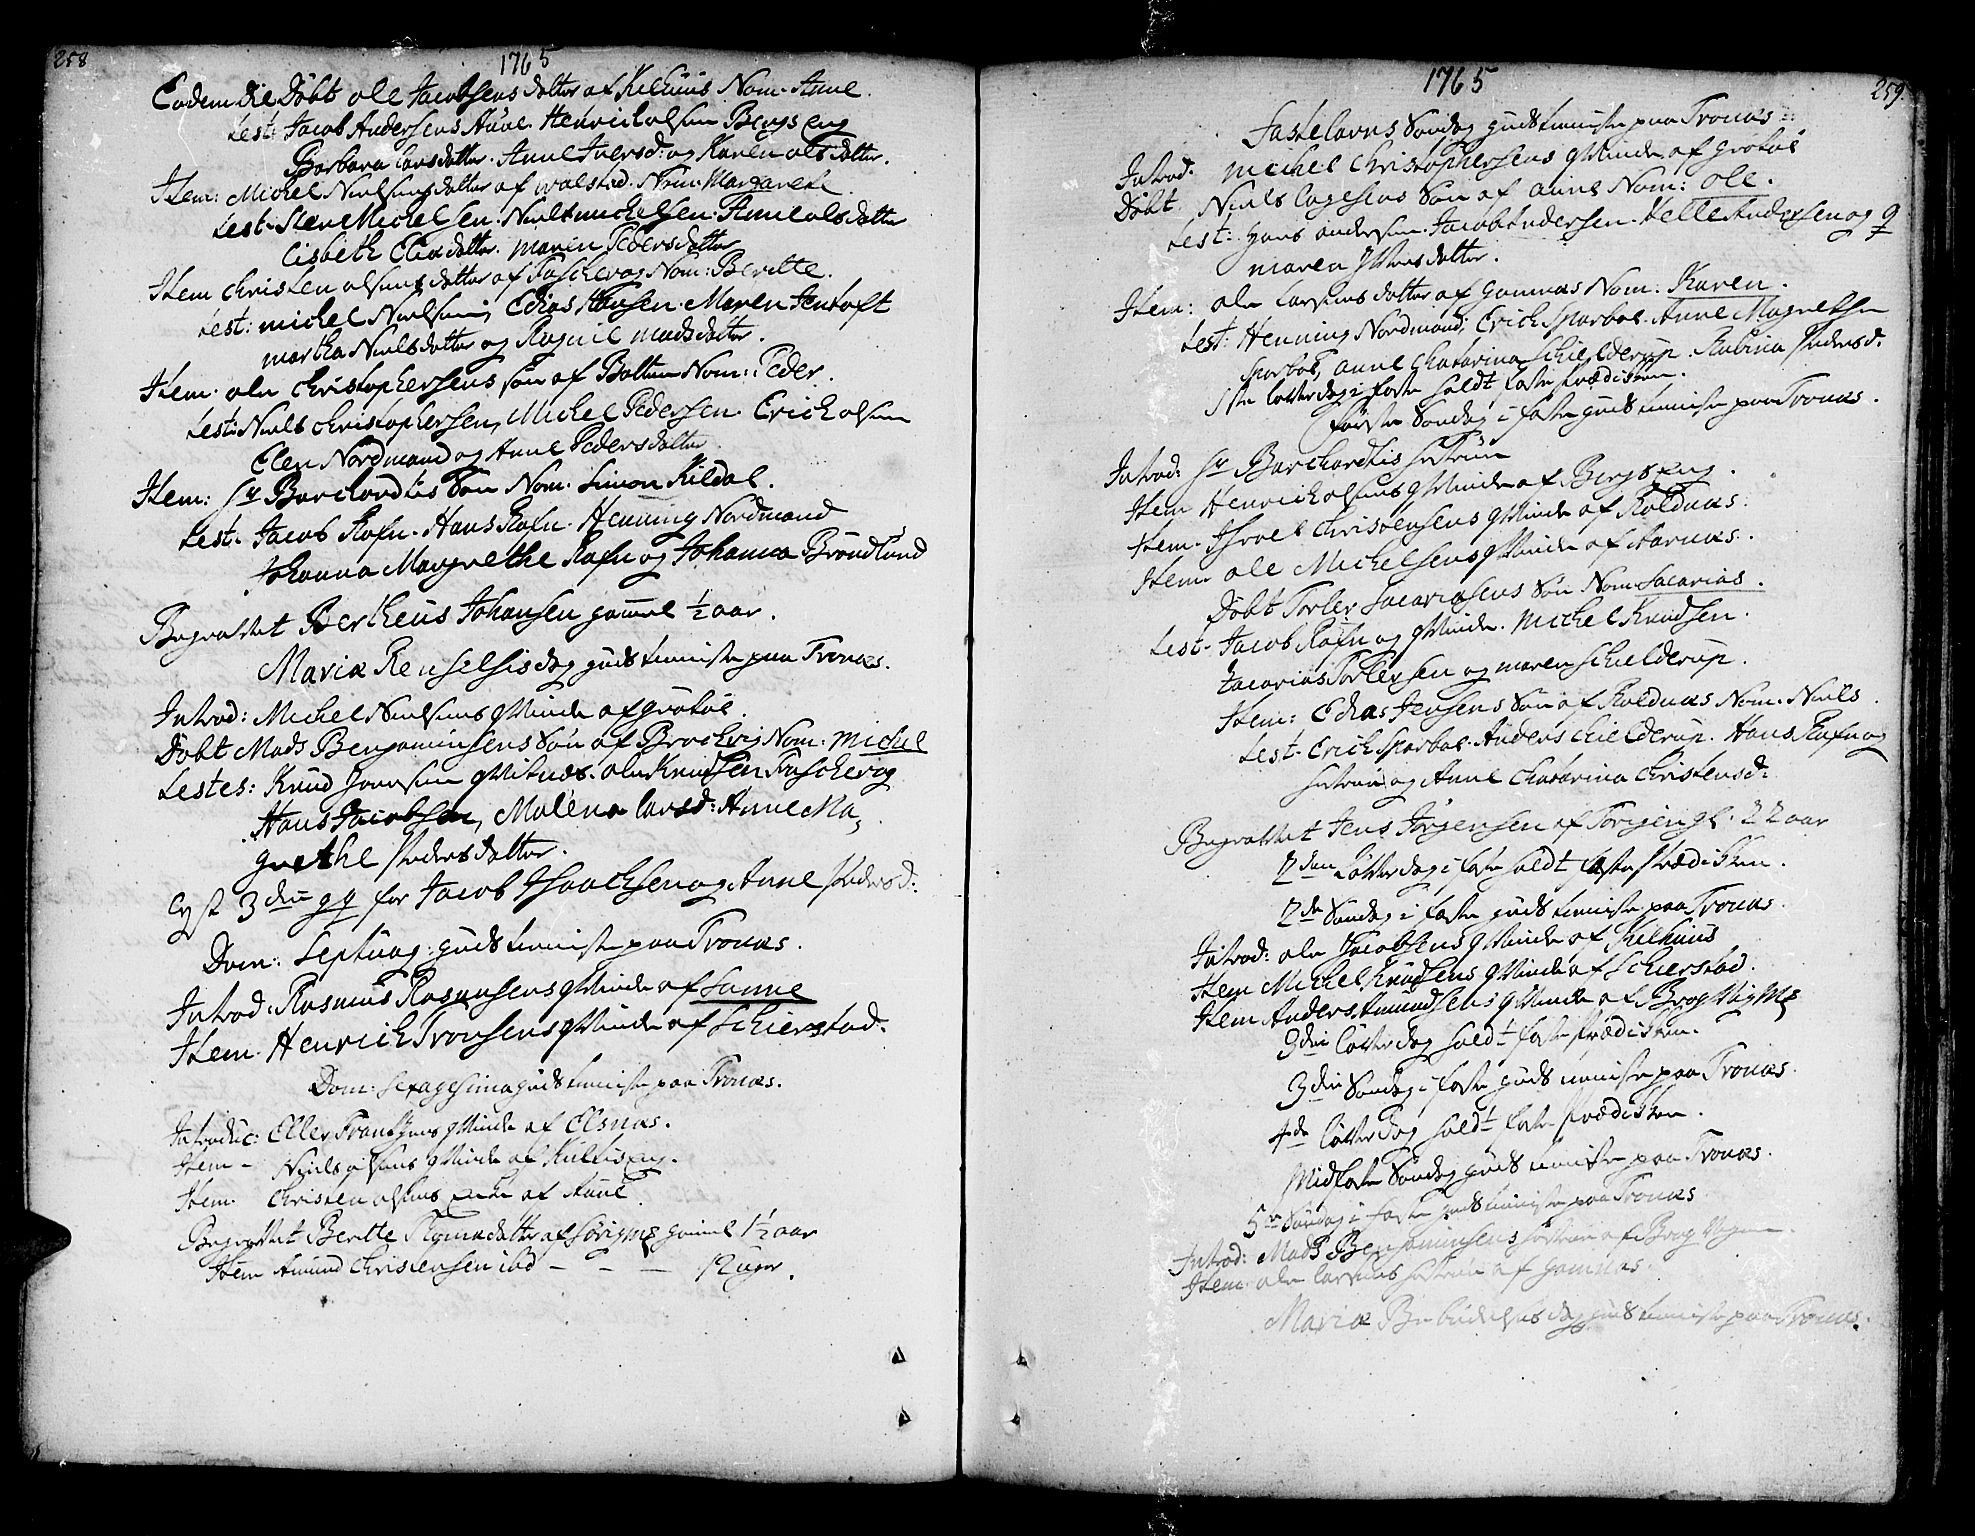 258
1765
Eodem die Döbt ole Jacobsens datter af Kilhuus Nom. Anne.
Test: Jacob Andersens Aune. Henrich olsen Bergseng
Barbara larsdatter. Anne Iversd: og Karen olsdatter.
Item: Michel Nielsens datter af walstad. Nom: Margarete.
Test. Sten Michelsen. Niels michelsen. Anne olsdatter
Lisbeth datter. maren Pedersdatter
Item Christen olsens datter af Fascherog Nom: Berette.
Test: michel Nielsen, Elias Hansen. Maren Jentoft
martha Nielsdatter og Ragnil madsdatter.
Item. ole Christophersens sön af Bolten Nom: Peder.
Test: Niels Christophersen, Michel Pedersen. Erich olsen
Elen Nordmand og Anne Pedersdatter
Item: Sr Borchardtis Sön Nom. Simon Kildal.
Test. Jacob Rafn. Hans Rafn. Henning Nordmand
Johanna Margrethe Rafn og Johanna Bröndlund
Begravet Bertheus Johansen gamel ½ aar.
Mariæ Renselsis dag gudstieniste paa Tronæs.
Introd: Michel Nielsens qvinde af grötöe.
Döbt Mads Benjaminsens Sön af Brochvig Nom: Michel
Testes: Knud Joensen ole Knudsen Fascherog
Hans Jacobsen, Malena larsd: Anne Ma-
grethe Pedersdatter.
Lyst 3die gg for Jacob Isaachsen og Anne Pedersd:
Dom: Septuag: gudstieniste paa Tronæs.
Introd. Rasmus Rasmusens qvinde af Sanne
Item. Henrich Tronsens qvinde af Schierstad.
Dom: sexagesima gudstieniste paa Tronæs.
Introduc: Eller Frantzens qvinde af Elsnæs.
Item - Niels olsens qvinde af Kultseng.
Item. Christen olsens af Aune
Begravet Berette datter af gamel 1½ aar
Item Amund Christensen ibd - - - 12 uger.
259
1765
Fastelavns Söndag gudstieniste paa Tronæs
Introd. Michel Christophersens qvinde af grötöe
Döbt Niels Sön af Aune Nom: ole.
Test: Hans andersen. Jacob Andersen. Andersen og q
maren datter.
Item: ole larsens datter af gamnæs Nom: Karen.
Test: Henning Nordmand, Erich Sparboe. Anne Magrethe
Sparboe, Anne Chatarina Schielderup. Rubina Pedersd.
1ste löverdag i faste holdt faste Prædichen.
förste Söndag i faste gudstieniste paa Tronæs.
Introd: Sr Borchardtis hustrue
Item Henrich olsens qvinde af Bergseng.
Item. Isroel Christensens qvinde af Roldnæs.
Item ole Michelsens qvinde af Aarnæs.
Döbt Torler Sacariasens Sön Nom: Sacarias.
Test. Jacob Rafn og qvinde. Michel Knudsen.
Zacarias Torlersen og maren Schielderup.
Item: Elias Jensens Sön af Roldnæs Nom. Niels.
Test. Erich Sparboe. Anders Schielderup. Hans Rafn og
hustrue og Anne Chatarina Christensd:
Begravet Jens Jörgensen af gl. 22 aar
2den Löverdag i faste holdt faste Prædichen.
2den Söndag i faste gudstieniste paa Tronæs.
Introd: ole Jacobsens qvinde af Kilhuus
Item Michel Knudsens qvinde af Schierstad.
Item Anders Amundsens qvinde af
3die löverdag holdt faste Prædichen.
3die Söndag i faste gudstieniste paa Tronæs.
4de löverdag holdt faste Prædichen.
Midfaste Söndag gudstieniste paa Tronæs.
5te Söndag i faste gudstieniste paa Tronæs
Introd: Mads Benjaminsens hustrue af
Item. ole larsens hustrue af gamnæs.
Mariæ Bebudelses dag gudstieniste paa Tronæs.